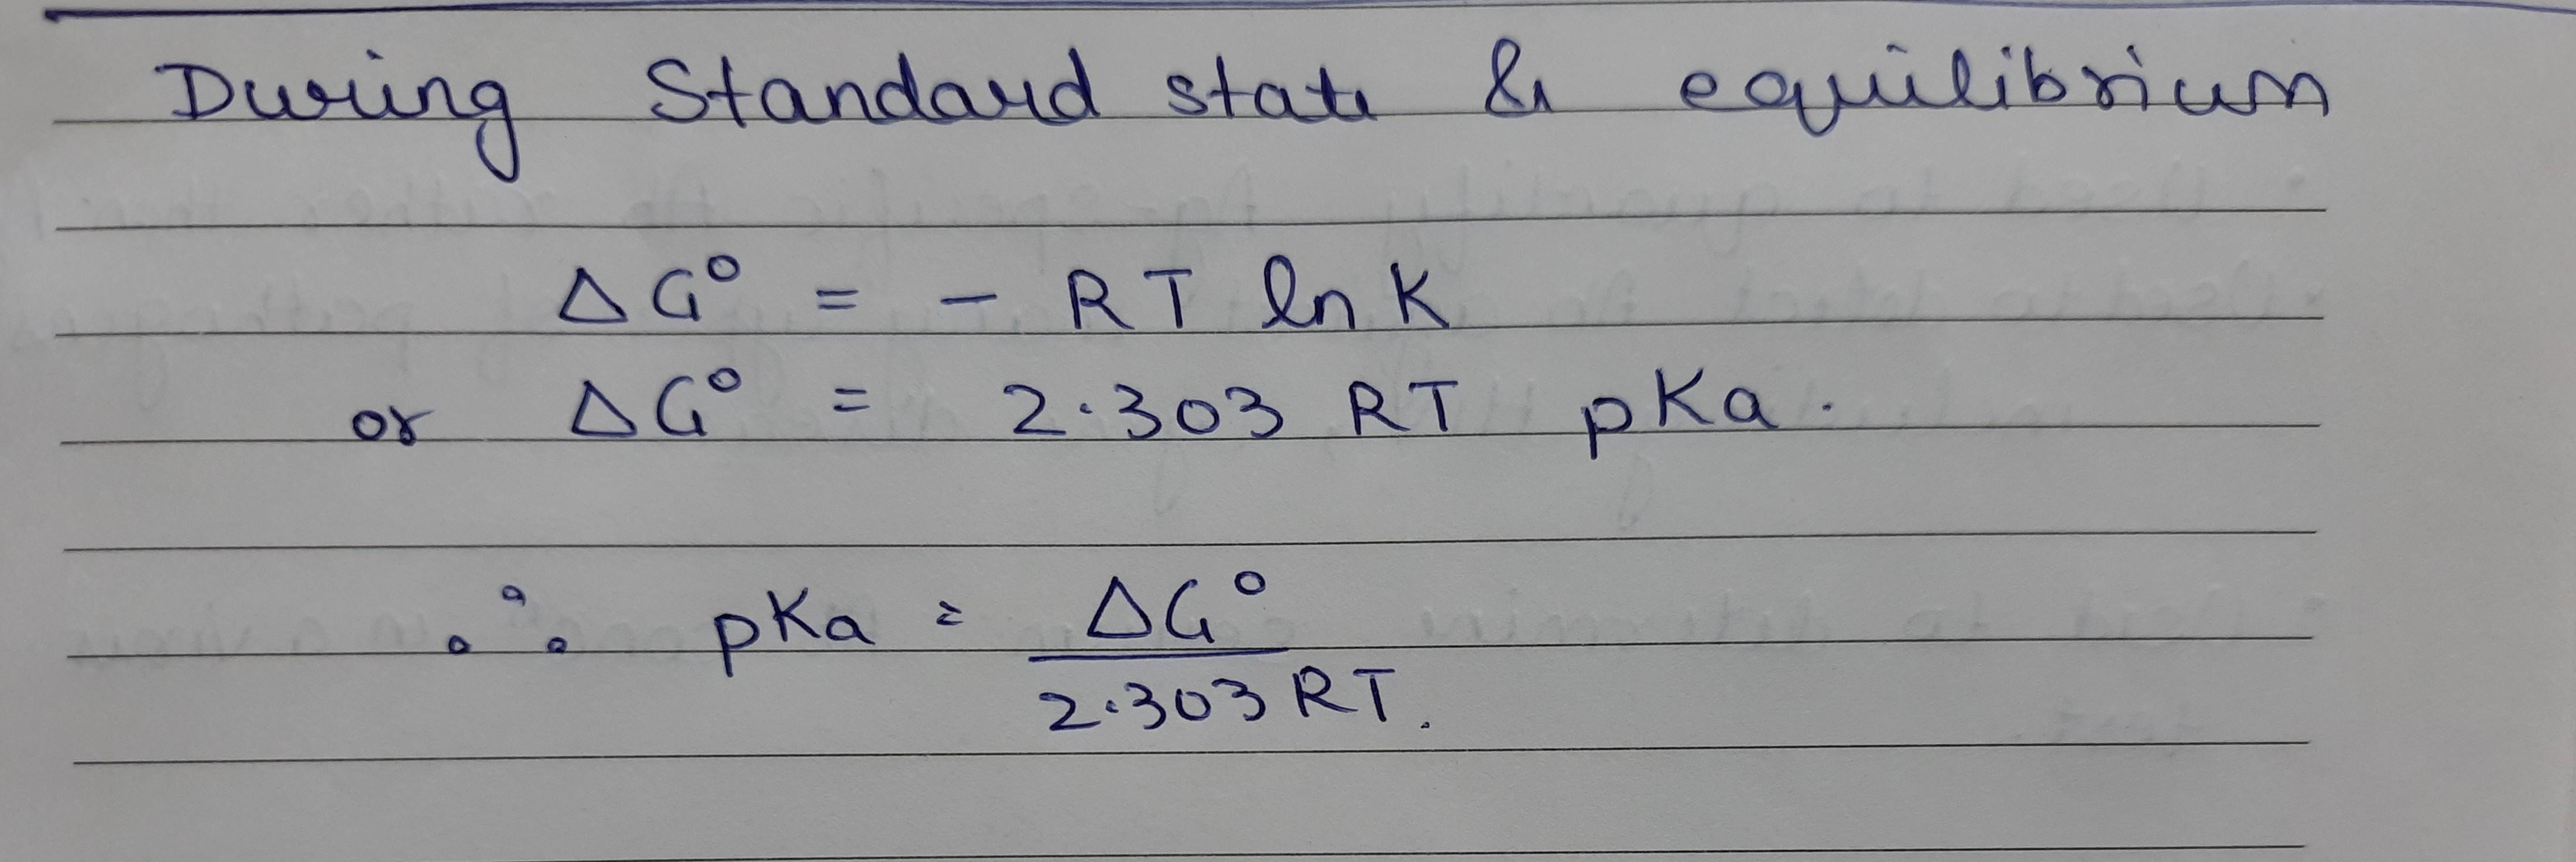 During Standard state & equilibrium
ΔG° = - RT ln K
or ΔG° = 2.303 RT pKa.
∴ pKa = ΔG°
2.303 RT.